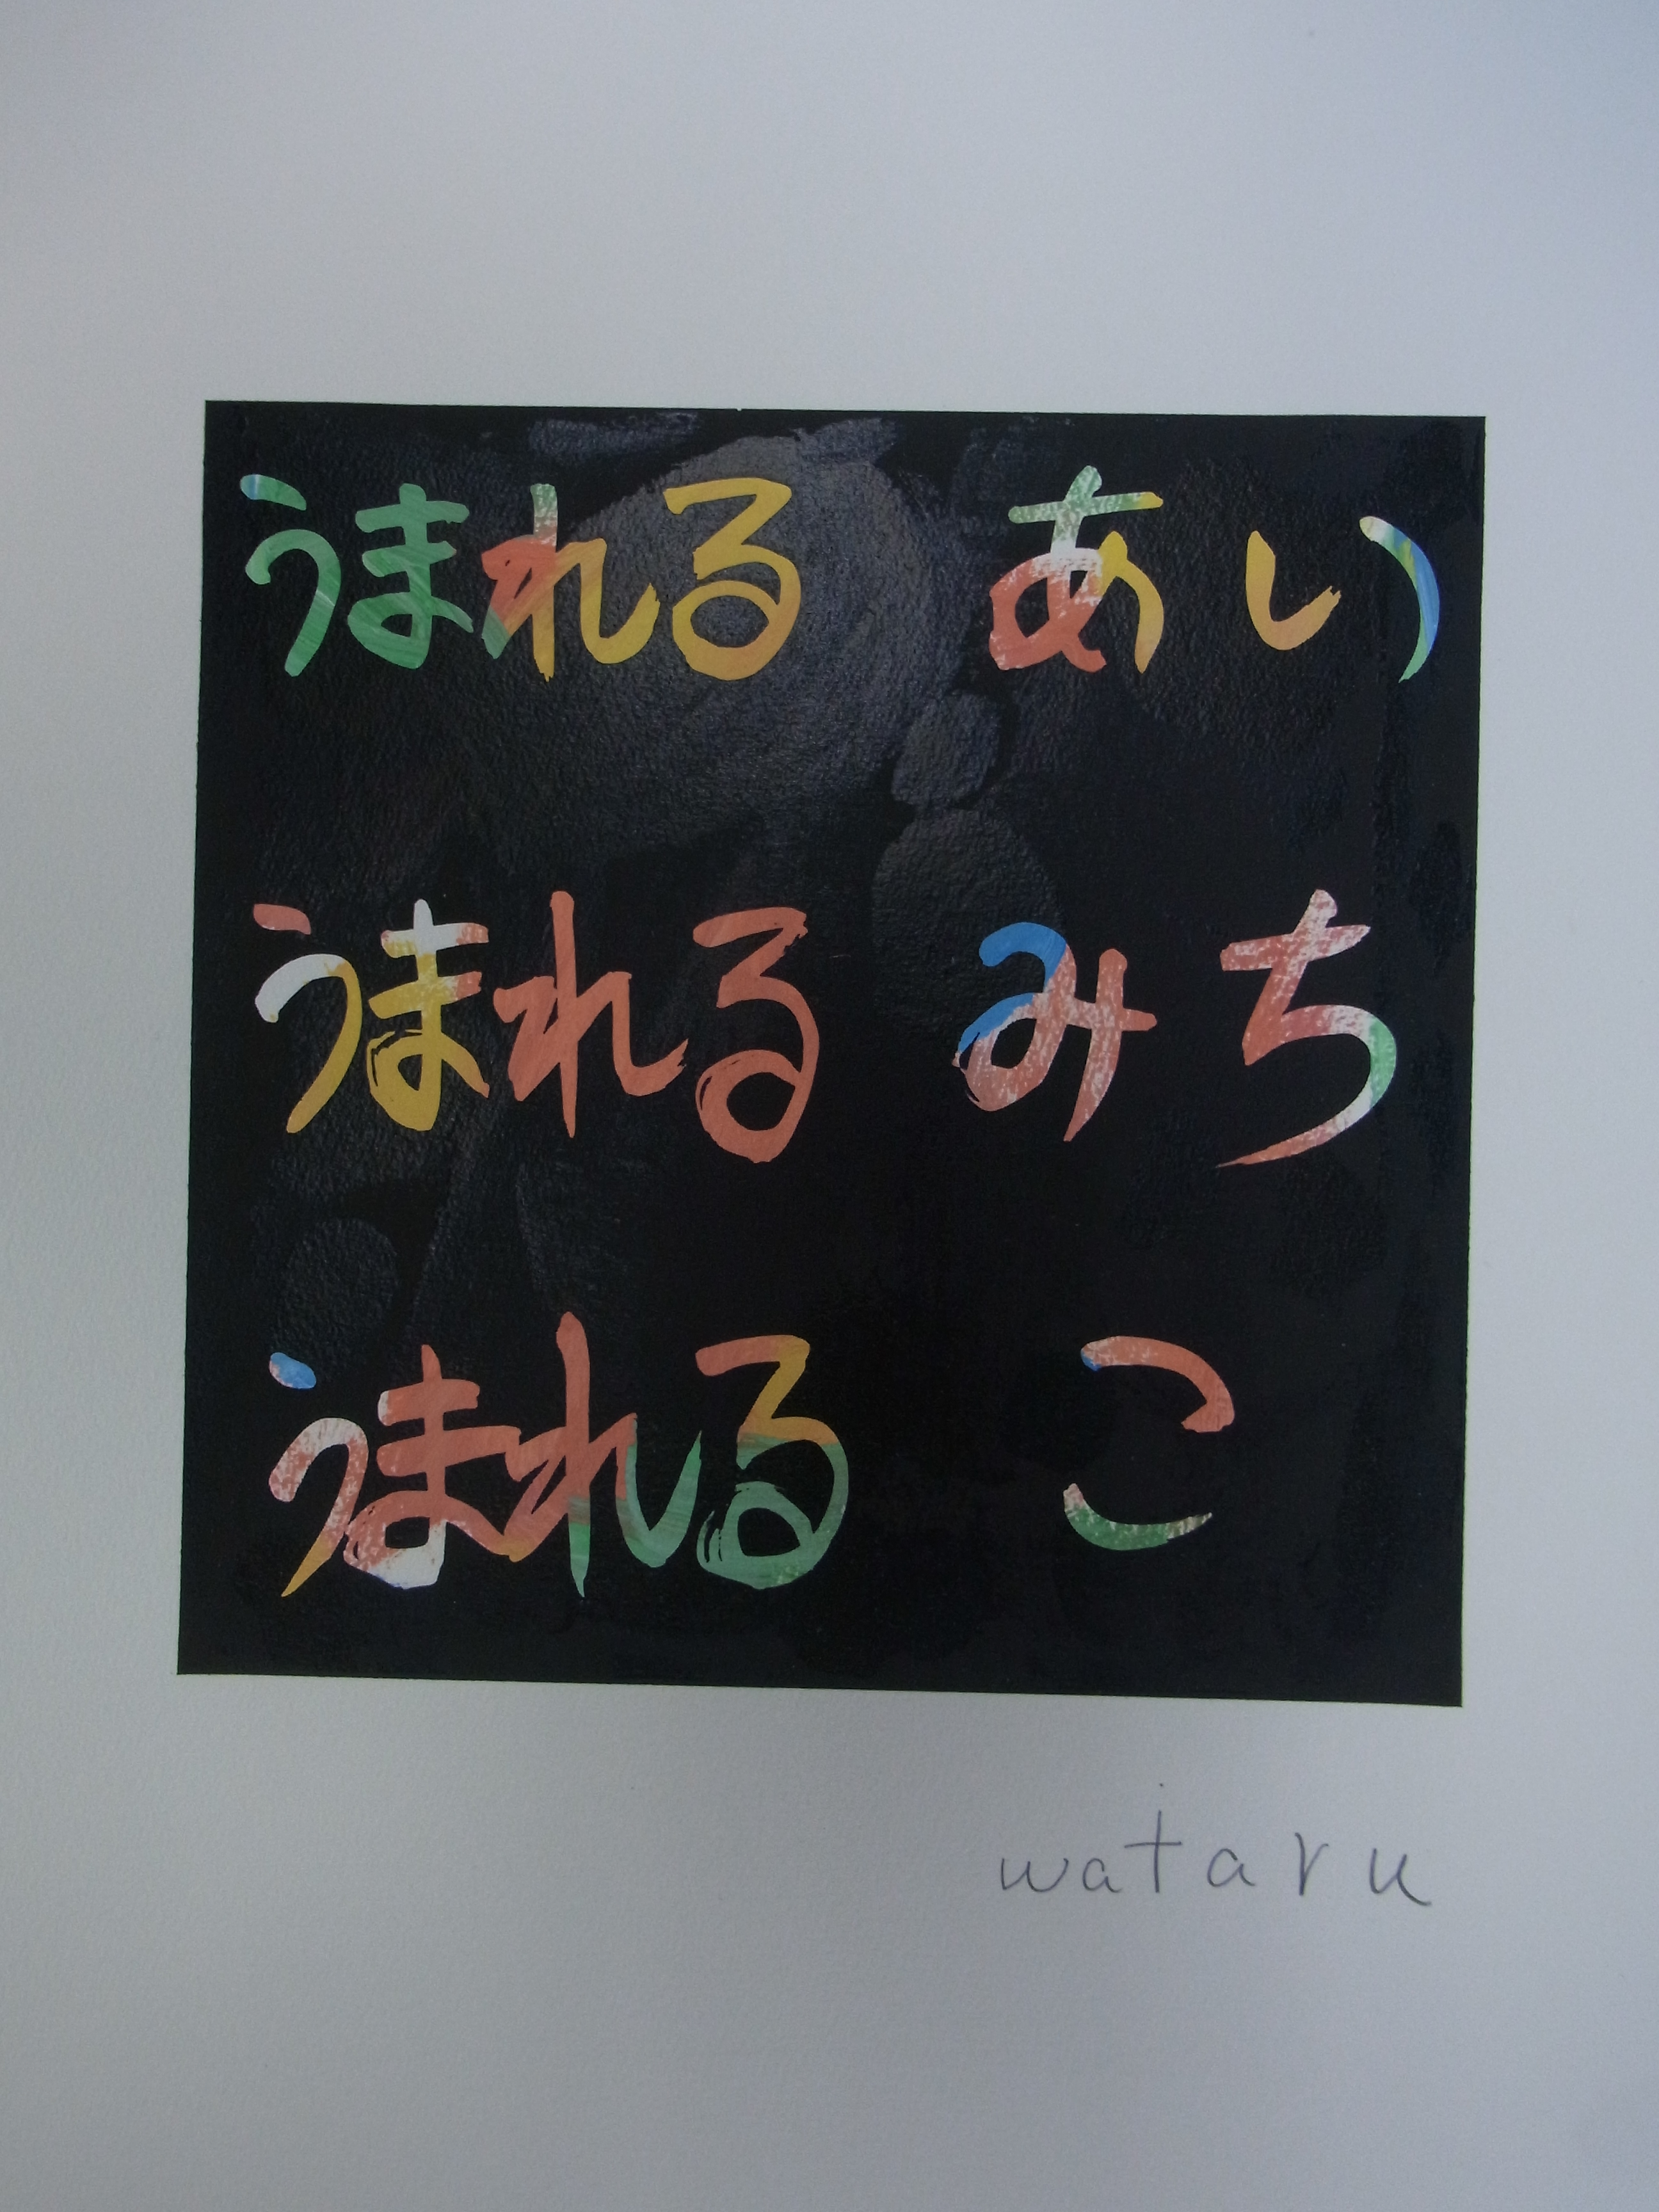 うまれる あい
うまれる みち
うまれる こ
wataru